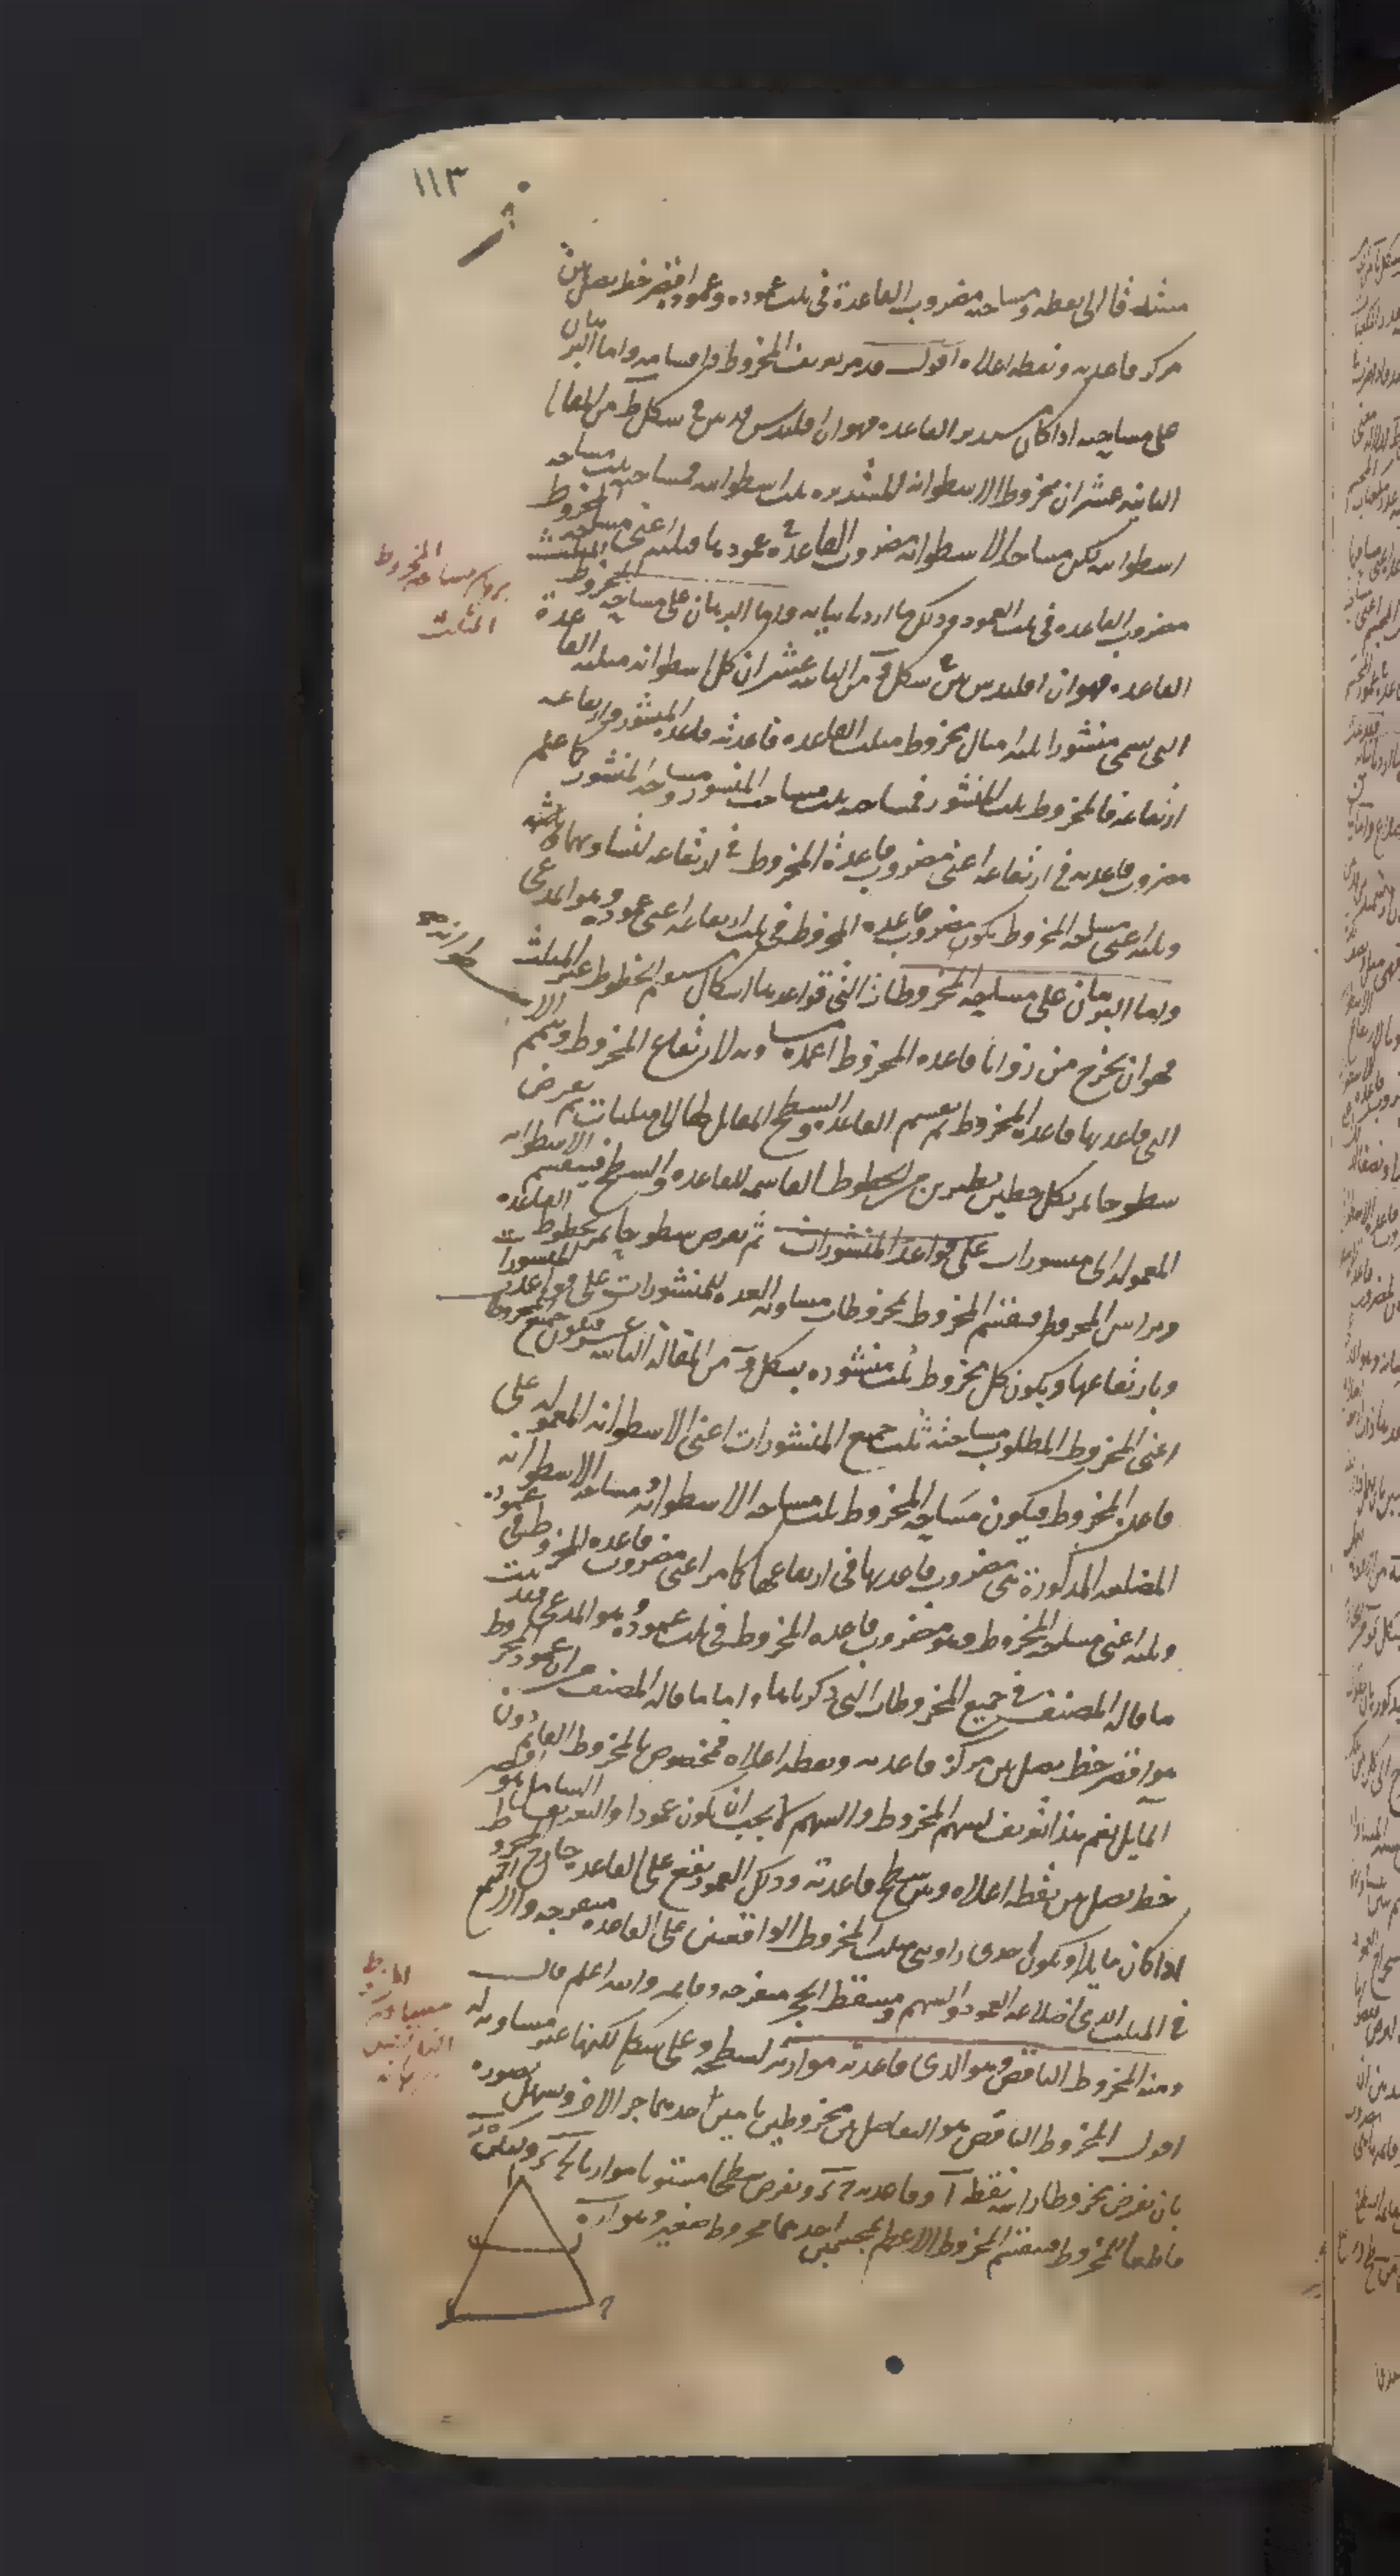 ١١٣
مثلثه فا الى نقطه ومساحته مضروب القاعدة فى ثلث عموده وعموده اقصر خط يصل بين
مركز قاعدته ونقطه اعلاه اقول قد مر تعريف المخروط واقسامه واما البرهان
على مساحته اذا كان مستدير القاعده فهو ان اقليدس بين فى شكل ط من المقالة
الثانيه عشر ان مخروط الاسطوانه المستديره ثلث اسطوانته فمساحته ثلث مساحه
اسطوانته لكن مساحه الاسطوانه مضروب القاعده فى عمودها فثلثه اعنى مساحه المخروط
مضروب القاعده فى ثلث العمود وذلك ما اردنا بيانه واما البرهان على مساحه المخروط المثلث
القاعده فهو ان اقليدس بين فى شكل و من الثانيه عشر ان كل اسطوانه مثلثه القاعدة
التى تسمى منشورا ثلثه امثال مخروط مثلث القاعده قاعدته قاعده المنشور وارتفاعه
ارتفاعه فالمخروط ثلث المنشور فمساحته ثلث مساحه المنشور ومساحه المنشور كما علم
مضروب قاعدته فى ارتفاعه اعنى مضروب قاعدة المخروط فى ارتفاعه لتساويهما
وثلثه اعنى مساحه المخروط يكون مضروب قاعده المخروط فى ثلث ارتفاعه اعنى عموده وهو المدعى
واما البرهان على مساحه المخروطات التى قواعدها اشكال مستقيم الخطوط غير المثلث
فهو ان يخرج من زوايا قاعده المخروط اعمده مساويه لارتفاع المخروط وتتمم الاسطوانه
التى قاعدتها قاعده المخروط ثم يقسم القاعده والسطح المقابل لها الى مثلثات ثم يفرض
سطوحا تمر بكل خطين نظيرين من الخطوط القاسمه للقاعده والسطح فينقسم الاسطوانه
المعموله الى منشورات على قواعد المنشورات ثم نفرض سطوحا تمر بخطوط القاعده
وبراس المخروط فينقسم المخروط بمخروطات مساويه العده للمنشورات على قواعد المنشورات
وبارتفاعها ويكون كل مخروط ثلث منشوره بشكل و من المقاله الثانيه عشر فيكون جميع المخروطات
اعنى المخروط المطلوب مساحته ثلث جميع المنشورات اعنى الاسطوانه المعموله على
قاعده المخروط فيكون مساحه المخروط ثلث مساحه الاسطوانه ومساحه الاسطوانه
المضلعه المذكورة هى مضروب قاعدتها فى ارتفاعها كما مر اعنى مضروب قاعده المخروط فى عموده
وثلثه اعنى مساحه المخروط وهو مضروب قاعده المخروط فى ثلث عموده وهو المدعى فقد ثبت
ما قاله المصنف فى جميع المخروطات التى ذكرناها واما ما قاله المصنف من ان عمود المخروط
هو اقصر خط يصل بين مركز قاعدته ونقطه اعلاه فمخصوص بالمخروط القائم دون
المايل نعم هذا تعريف لسهم المخروط والسهم لا يجب ان يكون عمودا والتعريف الشامل هو اقصر
خط يصل بين نقطه اعلاه وبين سطح قاعدته وذلك العمود يقع على القاعده خارج المخروط
اذا كان مايلا ويكون احدى زاويتى مثلث المخروط الواقعتين على القاعده منفرجه والا اجتمع
فى المثلث الذى اضلاعه العمود والسهم ومسقط الحجر منفرجه وقايمه والله اعلم قال
ومنه المخروط الناقص وهو الذى قاعدته موازية لسطحه وعلى شكله لكنها غير مساويه له
اقول المخروط الناقص هو التفاضل بين مخروطين تامين احدهما جزء الاخر وتسهل تصوره
بان نفرض مخروطا راسه نقطه ا وقاعدته ح ك ونفرض سطحا مستويا موازيا لح ك وليكن
قاطعا للمخروط فينقسم المخروط الاعظم بمجسمين احدهما مخروط صغير وهو ا ر ه
برهان مساحه المخروط
المثلث